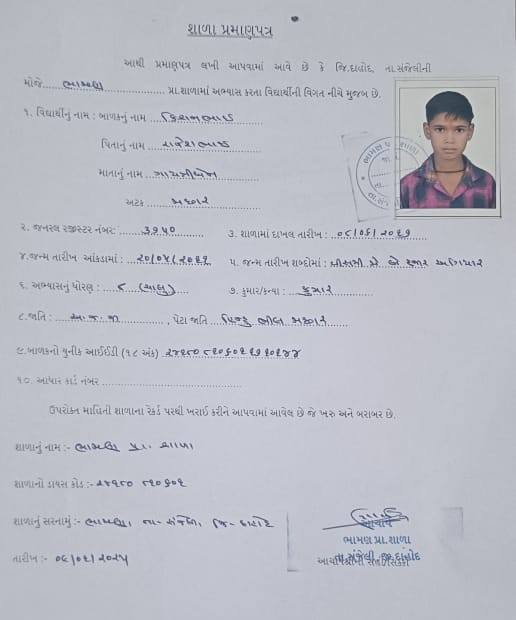 શાળા પ્રમાણપત્ર
આથી પ્રમાણપત્ર લખી આપવામાં આવે છે કે જિ.દાહોદ, તા.સંજેલીની
મોજે ભામણ પ્રા.શાળામાં અભ્યાસ કરતા વિદ્યાર્થીની વિગત નીચે મુજબ છે.
૧. વિદ્યાર્થીનું નામ : બાળકનું નામ કિશનભાઇ
પિતાનું નામ રાજેશભાઇ
માતાનું નામ ગાયત્રીબેન
અટક મછાર
૨. જનરલ રજીસ્ટર નંબર: ૩૧૫૦
૩. શાળામાં દાખલ તારીખ :
૪.જન્મ તારીખ આંકડામાં :
૫. જન્મ તારીખ શબ્દોમાં : બે હજાર અગિયાર
૬. અભ્યાસનું ધોરણ : ૮ (ચાલુ)
૭. કુમાર/કન્યા : કુમાર
૮.જાતિ : અ.જ.જા , પેટા જાતિ હિન્દુ ભીલ મછાર
૯.બાળકનો યુનીક આઈડીડી (૧૮ અંક)
૧૦. આધાર કાર્ડ નંબર
ઉપરોક્ત માહિતી શાળાના રેકર્ડ પરથી ખરાઈ કરીને આપવામાં આવેલ છે જે ખરુ અને બરાબર છે.
શાળાનું નામ :- ભામણ પ્રા. શાળા
શાળાનો ડાયસ કોડ :-
શાળાનું સરનામું :- ભામણ, તા- સંજેલી, જિ- દાહોદ
તારીખ :-
આચાર્ય
ભામણ પ્રા.શાળા
તા.સંજેલી, જી.દાહોદ